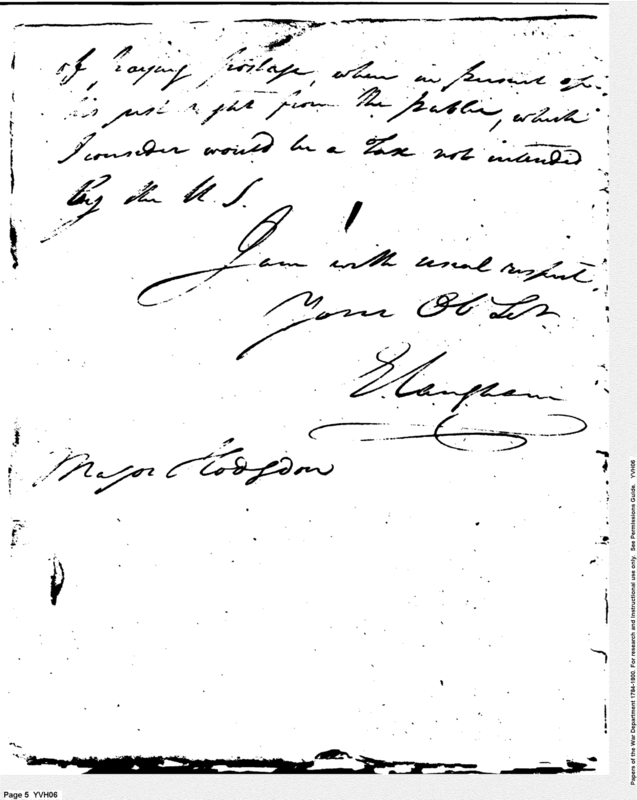 of paying postage, when in pursuit of
his just right from the public, which
I consider would be a Tax not intended
By the U. S.
I am with usual respect.
Your Ob Set
E Langham
Major Hodgdon
Page 5 YVH06
Papers of the War Department 1784-1800. For research and instructional use only. See Permissions Guide. YVH06